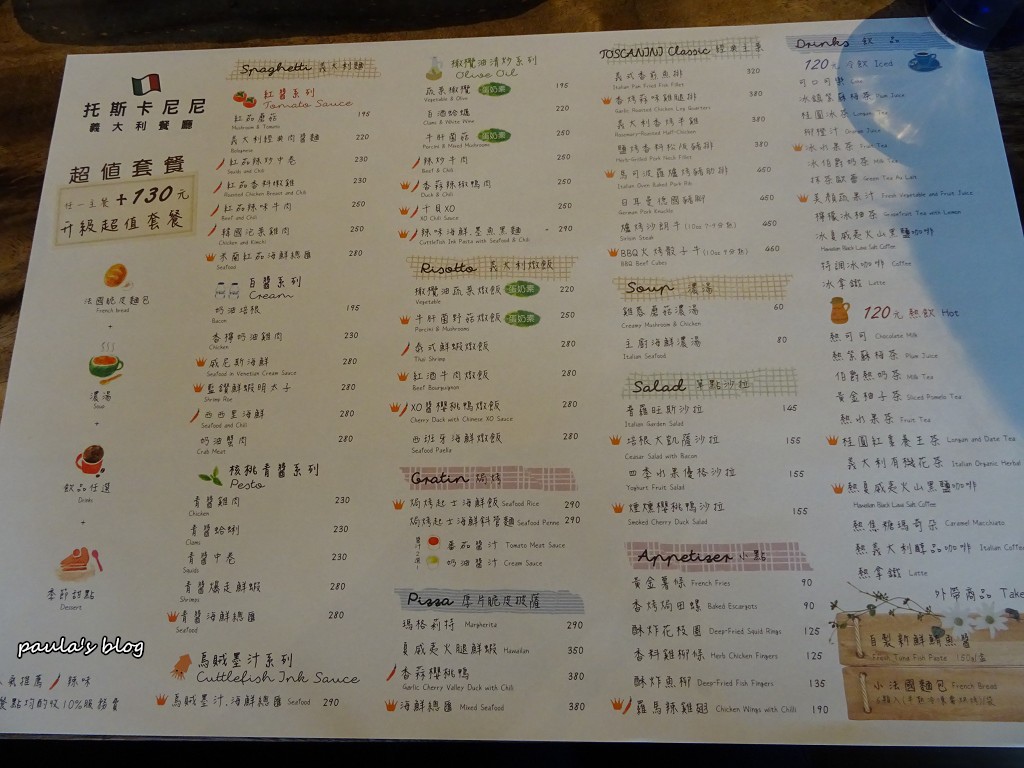 托斯卡尼尼
義大利餐廳
超值套餐
任一主餐+130元
升級超值套餐
法國脆皮麵包
French bread
+
濃湯
Soup
+
飲品任選
Drinks
+
季節甜點
Dessert
paula's blog
辣味
Spaghetti 義大利麵
紅醬系列
Tomato Sauce
紅茄蘑菇 195
Mushroom & Tomato
義大利經典肉醬麵 220
Bolognese
紅茄辣炒中卷 230
Squids and Chili
紅茄香料嫩雞 230
Roasted Chicken Breast and Chili
紅茄辣味牛肉 250
Beef and Chili
韓國泡菜雞肉 250
Chicken and Kimchi
米蘭紅茄海鮮總匯 280
Seafood
白醬系列
Cream
奶油培根 195
Bacon
香檸奶油雞肉 230
Chicken
威尼斯海鮮 280
Seafood in Venetian Cream Sauce
藍鑽鮮蝦明太子 280
Shrimp Roe
西西里海鮮 280
Seafood and Chili
奶油蟹肉 280
Crab Meat
核桃青醬系列
Pesto
青醬雞肉 230
Chicken
青醬蛤蜊 230
Clams
青醬中卷 230
Squids
青醬爆走鮮蝦 280
Shrimps
青醬海鮮總匯 280
Seafood
烏賊墨汁系列
Cuttlefish Ink Sauce
烏賊墨汁.海鮮總匯 Seafood 290
橄欖油清炒系列
Olive Oil
蔬菜橄欖 蛋奶素 195
Vegetable & Olive
白酒蛤蠣 220
Clams & White Wine
牛肝菌菇 蛋奶素 250
Porcini & Mixed Mushrooms
辣炒牛肉 250
Beef & Chili
香蒜辣椒鴨肉 250
Duck & Chili
干貝XO 250
XO Chili Sauce
辣味海鮮.墨魚黑麵 290
Cuttlefish Ink Pasta with Seafood & Chili
Risotto 義大利燉飯
橄欖油蔬菜燉飯 蛋奶素 220
Vegetable
牛肝菌野菇燉飯 蛋奶素 250
Porcini & Mushrooms
泰式鮮蝦燉飯 280
Thai Shrimp
紅酒牛肉燉飯 280
Beef Bourguignon
XO醬櫻桃鴨燉飯 280
Cherry Duck with Chinese XO Sauce
西班牙海鮮燉飯 280
Seafood Paella
Gratin 焗烤
焗烤起士海鮮飯 Seafood Rice 290
焗烤起士海鮮斜管麵 Seafood Penne 290
番茄醬汁 Tomato Meat Sauce
奶油醬汁 Cream Sauce
Pizza 厚片脆皮披薩
瑪格莉特 Margherita 290
夏威夷火腿鮮蝦 Hawaiian 350
香蒜櫻桃鴨 380
Garlic Cherry Valley Duck with Chili
海鮮總匯 Mixed Seafood 380
TOSCANINI Classic 經典主菜
義式香煎魚排 320
Italian Pan Fried Fish Fillet
香烤蒜味雞腿排 380
Garlic Roasted Chicken Leg Quarters
義大利香烤半雞 380
Rosemary-Roasted Half-Chicken
鹽烤香料松阪豬排 380
Herb-Grilled Pork Neck Fillet
馬可波羅爐烤豬肋排 450
Italian Oven Baked Pork Rib
日耳曼德國豬腳 450
German Pork Knuckle
爐烤沙朗牛(10oz 7-9分熟) 460
Sirloin Steak
BBQ火烤骰子牛(10oz 9分熟) 460
BBQ Beef Cubes
Soup 濃湯
雞蓉蘑菇濃湯 60
Creamy Mushroom & Chicken
主廚海鮮濃湯 80
Italian Seafood
Salad 單點沙拉
普羅旺斯沙拉 145
Italian Garden Salad
培根大凱薩沙拉 155
Ceasar Salad with Bacon
四季水果優格沙拉 155
Yoghurt Fruit Salad
煙燻櫻桃鴨沙拉 155
Smoked Cherry Duck Salad
Appetizer 小點
黃金薯條 French Fries 90
香烤焗田螺 Baked Escargots 90
酥炸花枝圈 Deep-Fried Squid Rings 125
香料雞柳條 Herb Chicken Fingers 125
酥炸魚柳 Deep-Fried Fish Fingers 135
羅馬辣雞翅 Chicken Wings with Chilli 190
Drinks 飲品
120元 冷飲 Iced
可口可樂
冰釀紫蘇梅茶 Plum Juice
桂圓冰茶 Longan Tea
柳橙汁 Orange Juice
冰水果茶 Fruit Tea
冰伯爵奶茶 Milk Tea
抹茶歐蕾 Green Tea Au Lait
美顏蔬果汁 Fresh Vegetable and Fruit Juice
檸檬冰柚茶 Grapefruit Tea with Lemon
冰夏威夷火山黑鹽咖啡
Hawaiian Black Lava Salt Coffee
特調冰咖啡 Coffee
冰拿鐵 Latte
120元 熱飲 Hot
熱可可 Chocolate Milk
熱紫蘇梅茶 Plum Juice
伯爵熱奶茶 Milk Tea
黃金柚子茶 Sliced Pomelo Tea
熱水果茶 Fruit Tea
桂圓紅棗養生茶 Longan and Date Tea
義大利有機花茶 Italian Organic Herbal
熱夏威夷火山黑鹽咖啡
Hawaiian Black Lava Salt Coffee
熱焦糖瑪奇朵 Caramel Macchiato
熱義大利醇品咖啡 Italian Coffee
熱拿鐵 Latte
外帶商品 Take
自製新鮮鮪魚醬
Fresh Tuna Fish Paste 150g/盒
小法國麵包 French Bread